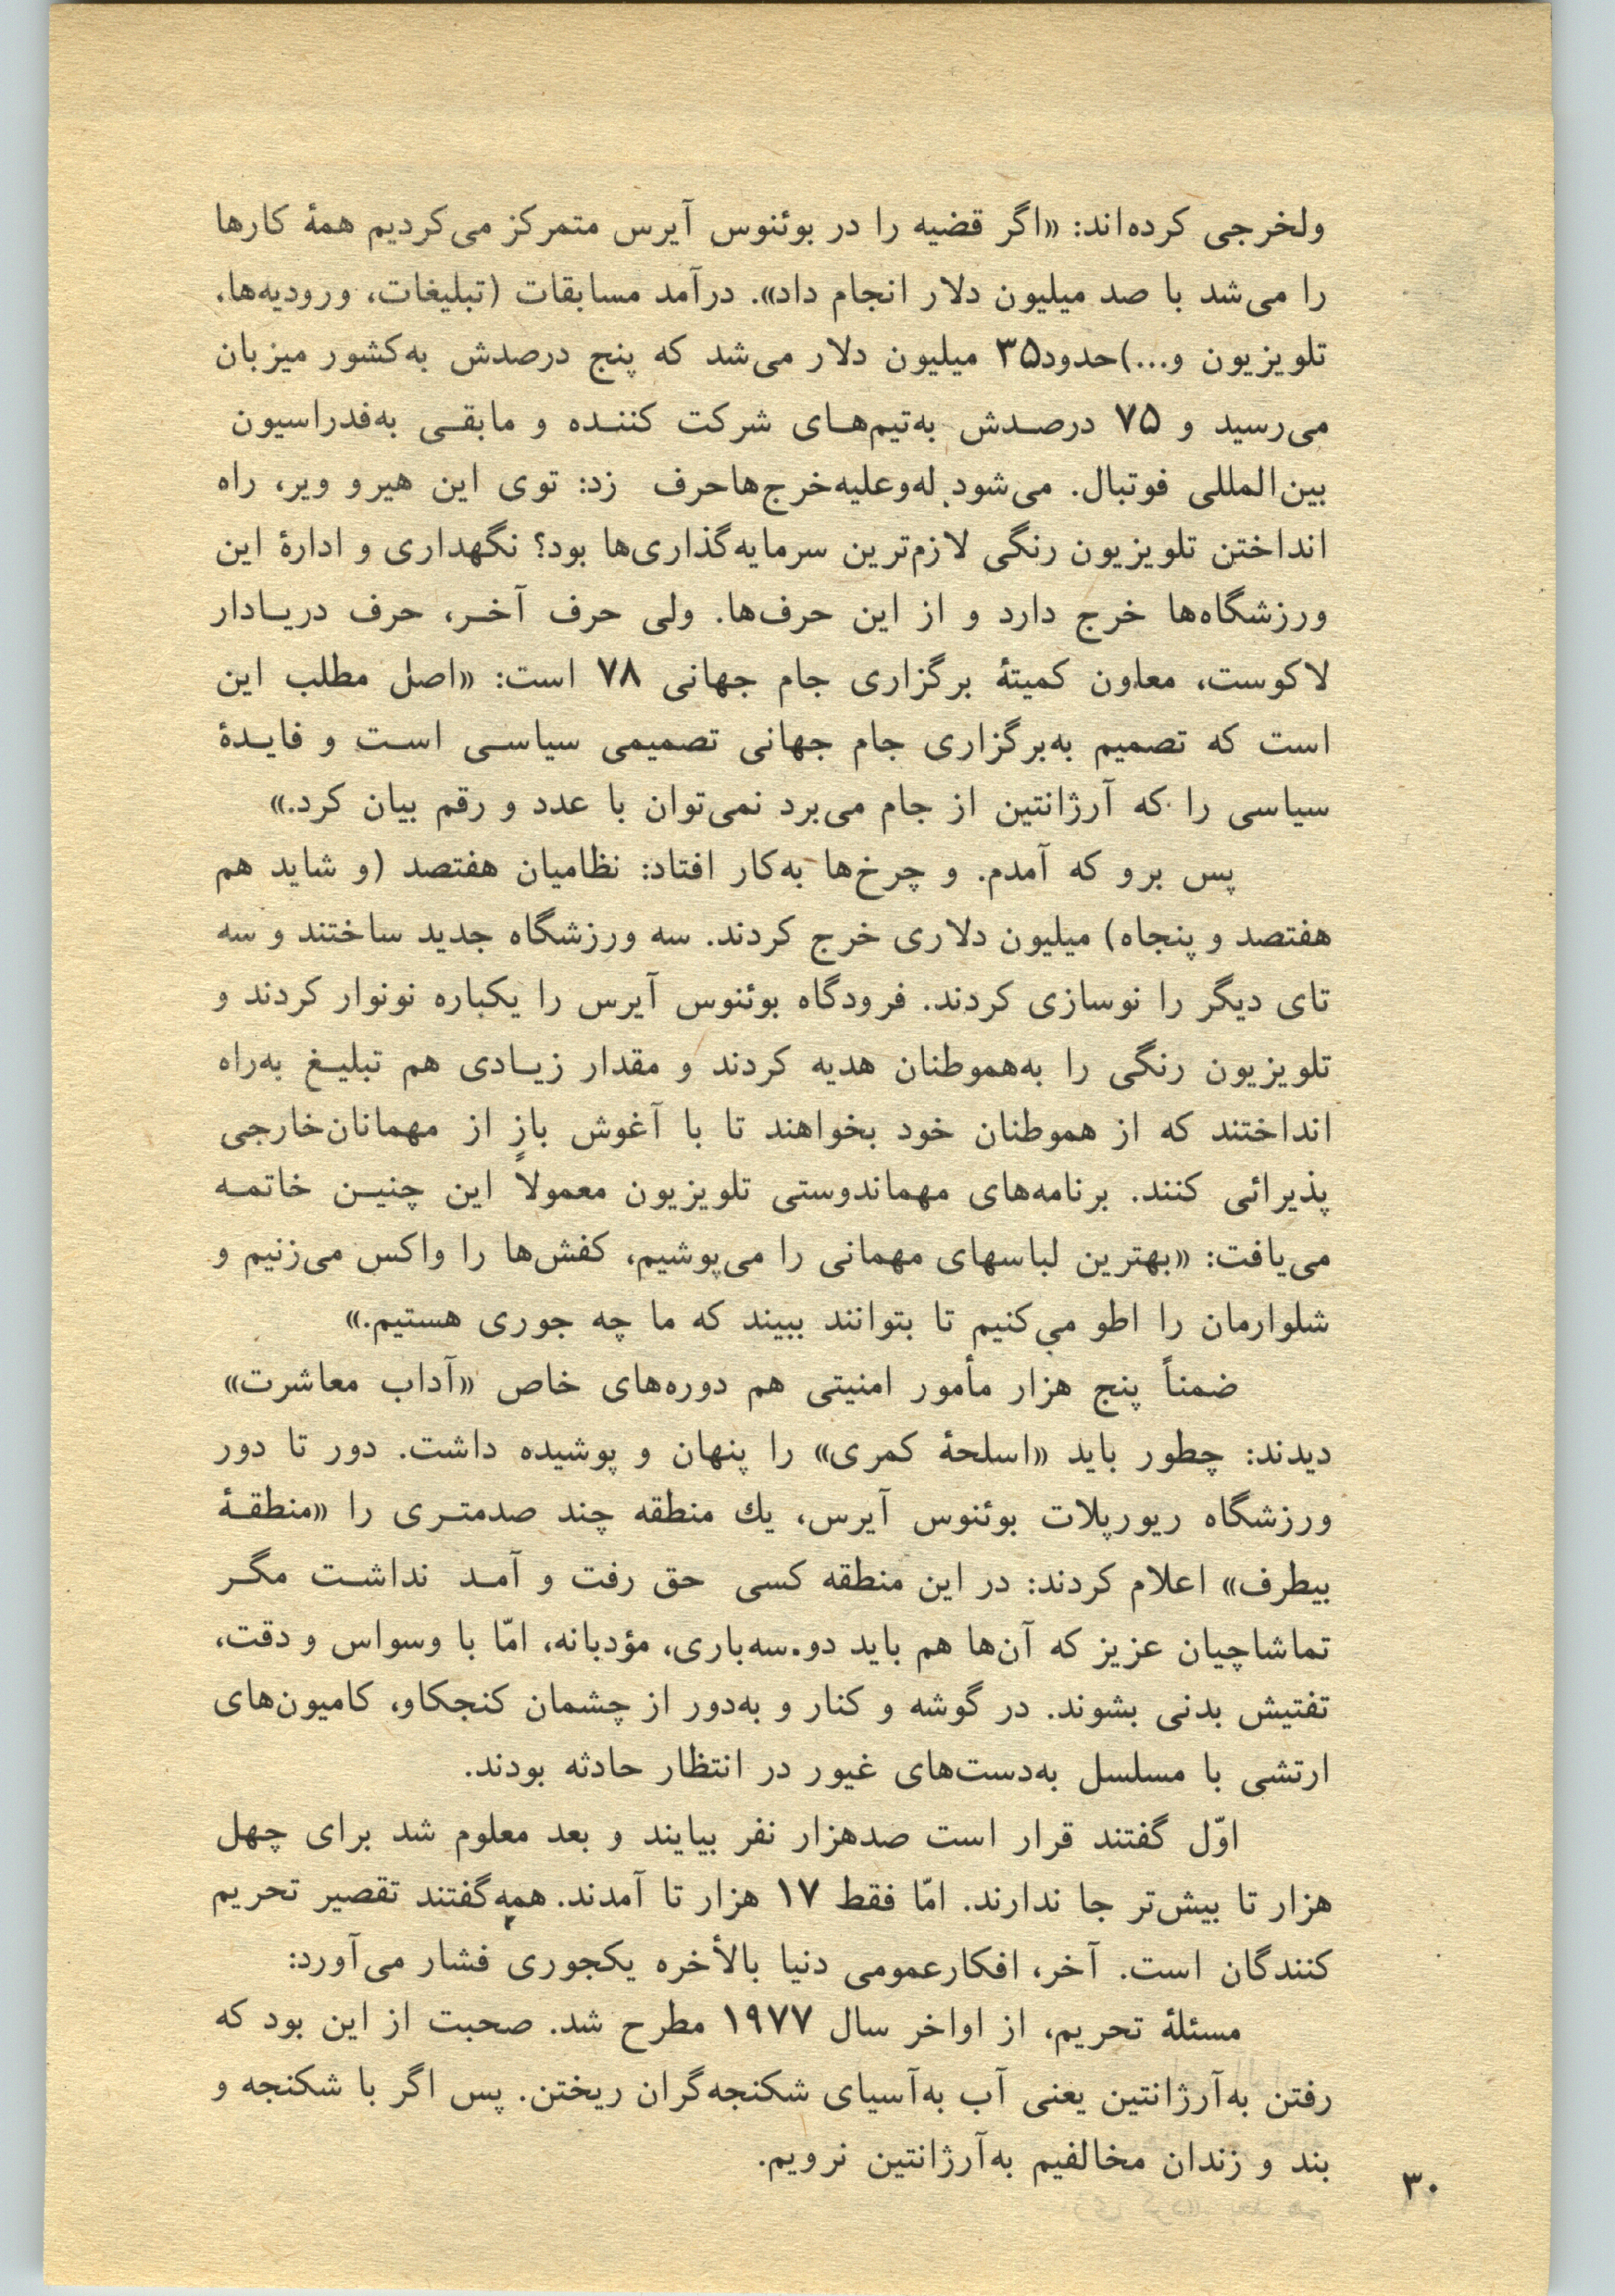 ولخرجی کرده‌اند: «اگر قضیه را در بوئنوس آیرس متمرکز می‌کردیم همهٔ کارها
را می‌شد با صد میلیون دلار انجام داد». درآمد مسابقات (تبلیغات، ورودیه‌ها،
تلویزیون و...)حدود۳۵ میلیون دلار می‌شد که پنج درصدش به‌کشور میزبان
می‌رسید و ۷۵ درصدش به‌تیم‌های شرکت کننده و مابقی به‌فدراسیون
بین‌المللی فوتبال. می‌شود له‌وعلیه‌خرج‌هاحرف زد: توی این هیرو ویر، راه
انداختن تلویزیون رنگی لازم‌ترین سرمایه‌گذاری‌ها بود؟ نگهداری و ادارهٔ این
ورزشگاه‌ها خرج دارد و از این حرف‌ها. ولی حرف آخر، حرف دریادار
لاکوست، معاون کمیتهٔ برگزاری جام جهانی ۷۸ است: «اصل مطلب این
است که تصمیم به‌برگزاری جام جهانی تصمیمی سیاسی است و فایدهٔ
سیاسی را که آرژانتین از جام می‌برد نمی‌توان با عدد و رقم بیان کرد.»
پس برو که آمدم. و چرخ‌ها به‌کار افتاد: نظامیان هفتصد (و شاید هم
هفتصد و پنجاه) میلیون دلاری خرج کردند. سه ورزشگاه جدید ساختند و سه
تای دیگر را نوسازی کردند. فرودگاه بوئنوس آیرس را یکباره نونوار کردند و
تلویزیون رنگی را به‌هموطنان هدیه کردند و مقدار زیادی هم تبلیغ به‌راه
انداختند که از هموطنان خود بخواهند تا با آغوش بازٍ از مهمانان‌خارجی
پذیرائی کنند. برنامه‌های مهماندوستی تلویزیون معمولاً این چنین خاتمه
می‌یافت: «بهترین لباسهای مهمانی را می‌پوشیم، کفش‌ها را واکس می‌زنیم و
شلوارمان را اطو می‌کنیم تا بتوانند ببیند که ما چه جوری هستیم.»
ضمناً پنج هزار مأمور امنیتی هم دوره‌های خاص «آداب معاشرت»
دیدند: چطور باید «اسلحهٔ کمری» را پنهان و پوشیده داشت. دور تا دور
ورزشگاه ریورپلات بوئنوس آیرس، یك منطقه چند صدمتری را «منطقهٔ
بیطرف» اعلام کردند: در این منطقه کسی حق رفت و آمد نداشت مگر
تماشاچیان عزیز که آن‌ها هم باید دو.سه‌باری، مؤدبانه، امّا با وسواس و دقت،
تفتیش بدنی بشوند. در گوشه و کنار و به‌دور از چشمان کنجکاو، کامیون‌های
ارتشی با مسلسل به‌دست‌های غیور در انتظار حادثه بودند.
اوّل گفتند قرار است صدهزار نفر بیایند و بعد معلوم شد برای چهل
هزار تا بیش‌تر جا ندارند. امّا فقط ۱۷ هزار تا آمدند. همه‌گفتند تقصیر تحریم
کنندگان است. آخر، افکارعمومی دنیا بالأخره یکجوری فشار می‌آورد:
مسئلهٔ تحریم، از اواخر سال ۱۹۷۷ مطرح شد. صحبت از این بود که
رفتن به‌آرژانتین یعنی آب به‌آسیای شکنجه‌گران ریختن. پس اگر با شکنجه و
بند و زندان مخالفیم به‌آرژانتین نرویم.
۳۰